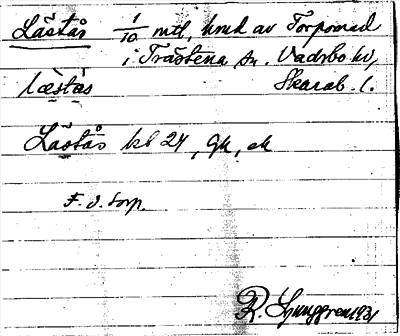 Låstås 1/10 mtl, hmd av Torpomad
i Trästena sn. Vadsbo hd,
læstås Skarab. l.
Låstås kb 24, gk, ek
F. d. torp.
R. Ljunggren 1931